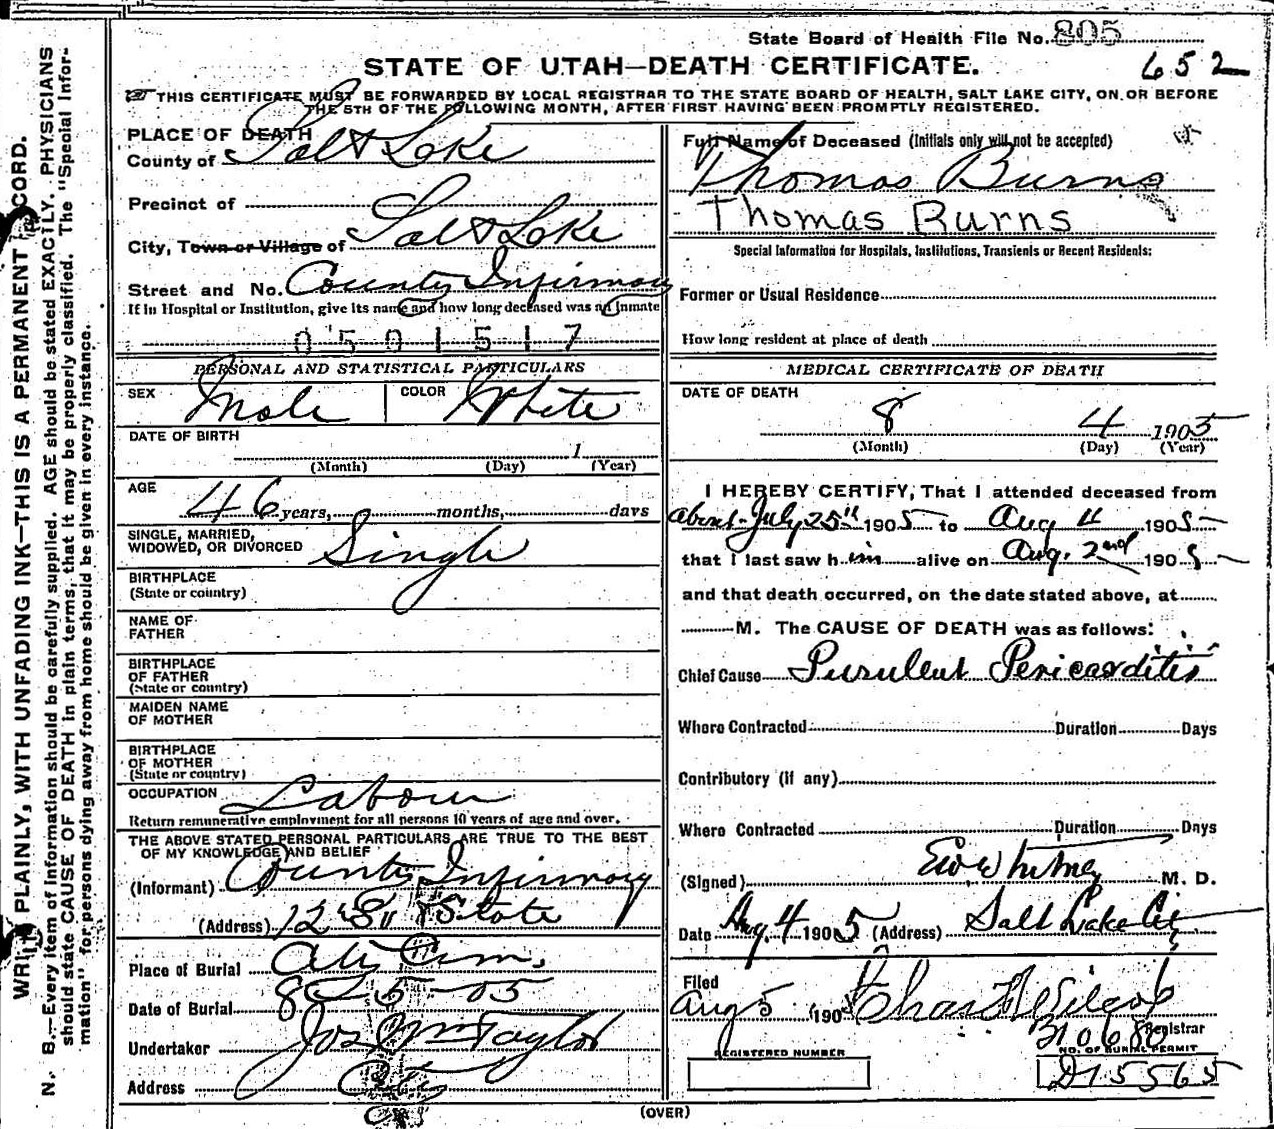 State Board of Health File No. 805
652
STATE OF UTAH—DEATH CERTIFICATE.
THIS CERTIFICATE MUST BE FORWARDED BY LOCAL REGISTRAR TO THE STATE BOARD OF HEALTH, SALT LAKE CITY, ON OR BEFORE
THE 5TH OF THE FOLLOWING MONTH, AFTER FIRST HAVING BEEN PROMPTLY REGISTERED.
PLACE OF DEATH
County of Salt Lake
Precinct of
City, Town or Village of Salt Lake
Street and No. County Infirmary
If in Hospital or Institution, give its name and how long deceased was an inmate
0501517
PERSONAL AND STATISTICAL PARTICULARS
SEX Male COLOR White
DATE OF BIRTH
1
(Month) (Day) (Year)
AGE
46 years, months, days
SINGLE, MARRIED,
WIDOWED, OR DIVORCED Single
BIRTHPLACE
(State or country)
NAME OF
FATHER
BIRTHPLACE
OF FATHER
(State or country)
MAIDEN NAME
OF MOTHER
BIRTHPLACE
OF MOTHER
(State or country)
OCCUPATION Labour
Return remunerative employment for all persons 10 years of age and over.
THE ABOVE STATED PERSONAL PARTICULARS ARE TRUE TO THE BEST
OF MY KNOWLEDGE AND BELIEF
(Informant) County Infirmary
(Address) 12 So State
Place of Burial City Cem.
Date of Burial 8-5-05
Undertaker Jos Wm Taylor
Address City
Full Name of Deceased (Initials only will not be accepted)
Thomas Burns
Thomas Burns
Special Information for Hospitals, Institutions, Transients or Recent Residents:
Former or Usual Residence
How long resident at place of death
MEDICAL CERTIFICATE OF DEATH
DATE OF DEATH
8 4 1905
(Month) (Day) (Year)
I HEREBY CERTIFY, That I attended deceased from
about July 25th 1905 to Aug 4 1905
that I last saw him alive on Aug. 2nd 1905
and that death occurred, on the date stated above, at
M. The CAUSE OF DEATH was as follows:
Chief Cause Purulent Pericarditis
Where Contracted Duration Days
Contributory (if any)
Where Contracted Duration Days
(Signed) Ew Whitney M. D.
Date Aug. 4 1905 (Address) Salt Lake City
Filed
Aug 5 1905 Chas Wilcox
Registrar
310680
REGISTERED NUMBER
NO. OF BURIAL PERMIT
D15565
(OVER)
WRITE PLAINLY, WITH UNFADING INK—THIS IS A PERMANENT RECORD.
N. B.—Every item of information should be carefully supplied. AGE should be stated EXACTLY. PHYSICIANS
should state CAUSE OF DEATH in plain terms, that it may be properly classified. The "Special Infor-
mation" for persons dying away from home should be given in every instance.